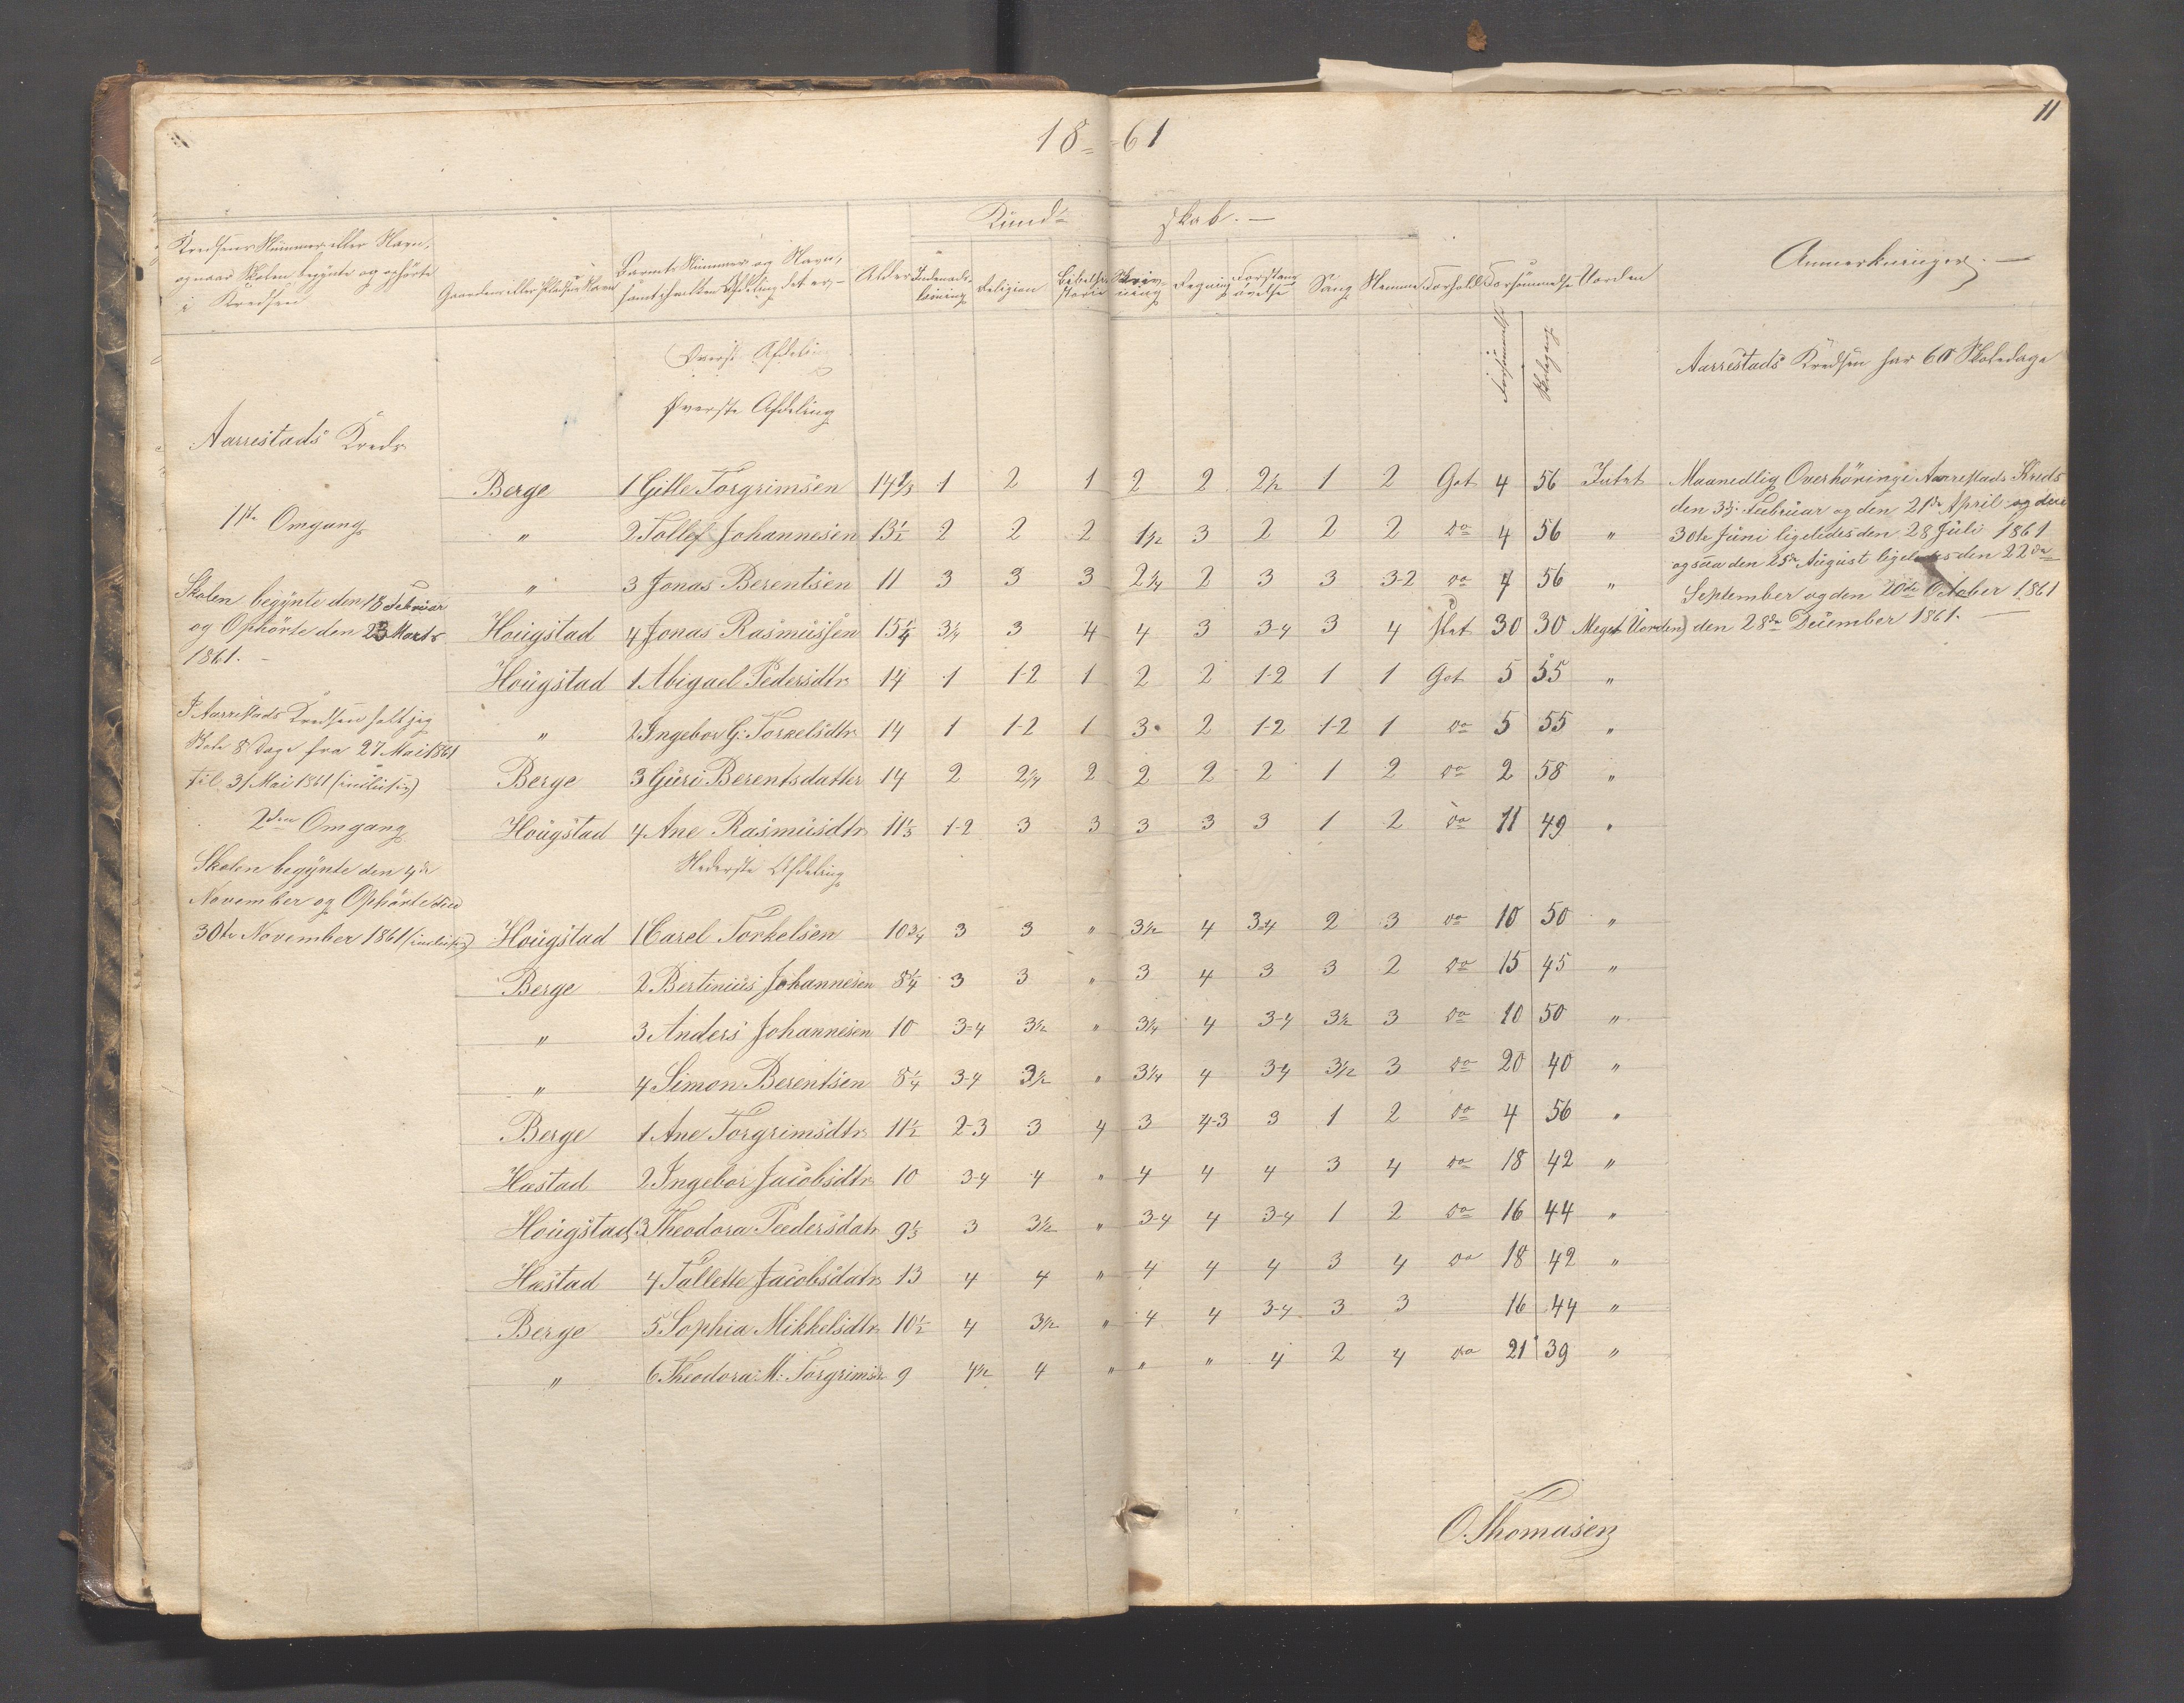 11
18-61
Kund-
skab.-
Kredsens Nummer eller Navn,
og naar Skolen begynte og ophørte
i Kredsen
Gaardens eller Pladsens Navn
Barnets Nummer og Navn,
samt hvilken Afdeling det er,-
Alder
Indenads-
læsning
Religion
Bibelhi-
storie
Skriv-
ning
Regning
Forstands
øvelse
Sang
Nemme
Forhold
Forsømmelse
Uorden
Anmerkninger.-
Forsømmelse
Skolegang
Øverste Afdelin
Øverste Afdeling
Aarrestads Kredsen har 60 Skoledage
Aarrestads Kreds
1ste Omgang
Skolen begynte den 18 Februar
og Ophörte den 23 Marts
1861.-
I Aarrestads Kredsen holt jeg
Skole 8 Dage fra 27 Mai 1861
til 31 Mai 1861 (inclusiv)
2den Omgang
Skolen begynte den 4de
November og Ophörte den
30te November 1861 (inclusiv)
Berge 1 Gitle Torgrimsen 14 1/3 1 2 1 2 2 2 1/2 1 2 Got 4 56 Intet
" 2 Tollef Johannesen 13 1/2 2 2 2 1 1/2 3 2 2 2 do 4 56 "
" 3 Jonas Berentsen 11 3 3 3 2 1/4 2 3 3 3-2 do 4 56 "
Hougstad 4 Jonas Rasmussen 15 1/4 3 1/4 3 4 4 3 3-4 3 4 Slet 30 30 Meget Uorden
Hougstad 1 Abigael Pedersdtr 14 1 1-2 1 2 2 1-2 1 1 Got 5 55 "
" 2 Ingebor G: Torkelsdtr 14 1 1-2 1 3 2 1-2 1-2 1 do 5 55 "
Berge 3 Guri Berentsdatter 14 2 2 1/4 2 2 2 2 1 2 do 2 58 "
Hougstad 4 Ane Rasmusdtr 11 1/3 1-2 3 3 3 3 3 1 2 do 11 49 "
Nederste Afdeling
Hougstad 1 Carel Torkelsen 10 3/4 3 3 " 3 1/2 4 3-4 2 3 do 10 50 "
Berge 2 Bertinius Johannesen 8 1/4 3 3 " 3 4 3 3 2 do 15 45 "
" 3 Anders Johannesen 10 3-4 3 1/2 " 3 1/4 4 3-4 3 1/2 3 do 10 50 "
" 4 Simon Berentsen 8 1/4 3-4 3 1/2 " 3 1/4 4 3-4 3 1/2 3 do 20 40 "
Berge 1 Ane Torgrimsdtr 11 1/2 2-3 3 4 3 4-3 3 1 2 do 4 56 "
Hæstad 2 Ingebor Jacobsdtr 10 3-4 4 " 4 4 4 3 4 do 18 42 "
Hougstad 3 Theodora Pedersdatr 9 1/3 3 3 1/2 " 3-4 4 3-4 1 2 do 16 44 "
Hæstad 4 Tallette Jacobsdatr 13 4 4 " 4 4 4 3 4 do 18 42 "
Berge 5 Sophia Mikkelsdtr 10 1/2 4 3 1/2 " 4 4 3-4 3 3 16 44 "
" 6 Theodora M: Torgrimsdr 9 4 1/2 4 " " " 4 2 4 do 21 39 "
Maanedlig Overhöring i Aarrestads Kreds
den 3dj. Februar og den 21de April og den
30te Juni ligeledes den 28 Juli 1861
ogsaa den 25de August ligeledes den 22de
September og den 20de October 1861
den 28de December 1861.-
O. Thomasen